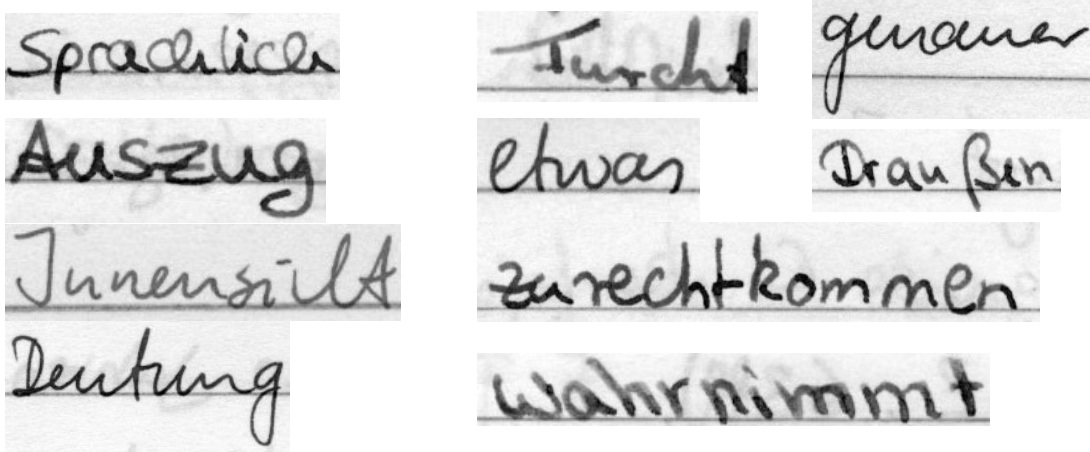 Sprachlich Furcht genauer
Auszug etwas Draußen
Innensicht zurechtkommen
Deutung wahrnimmt